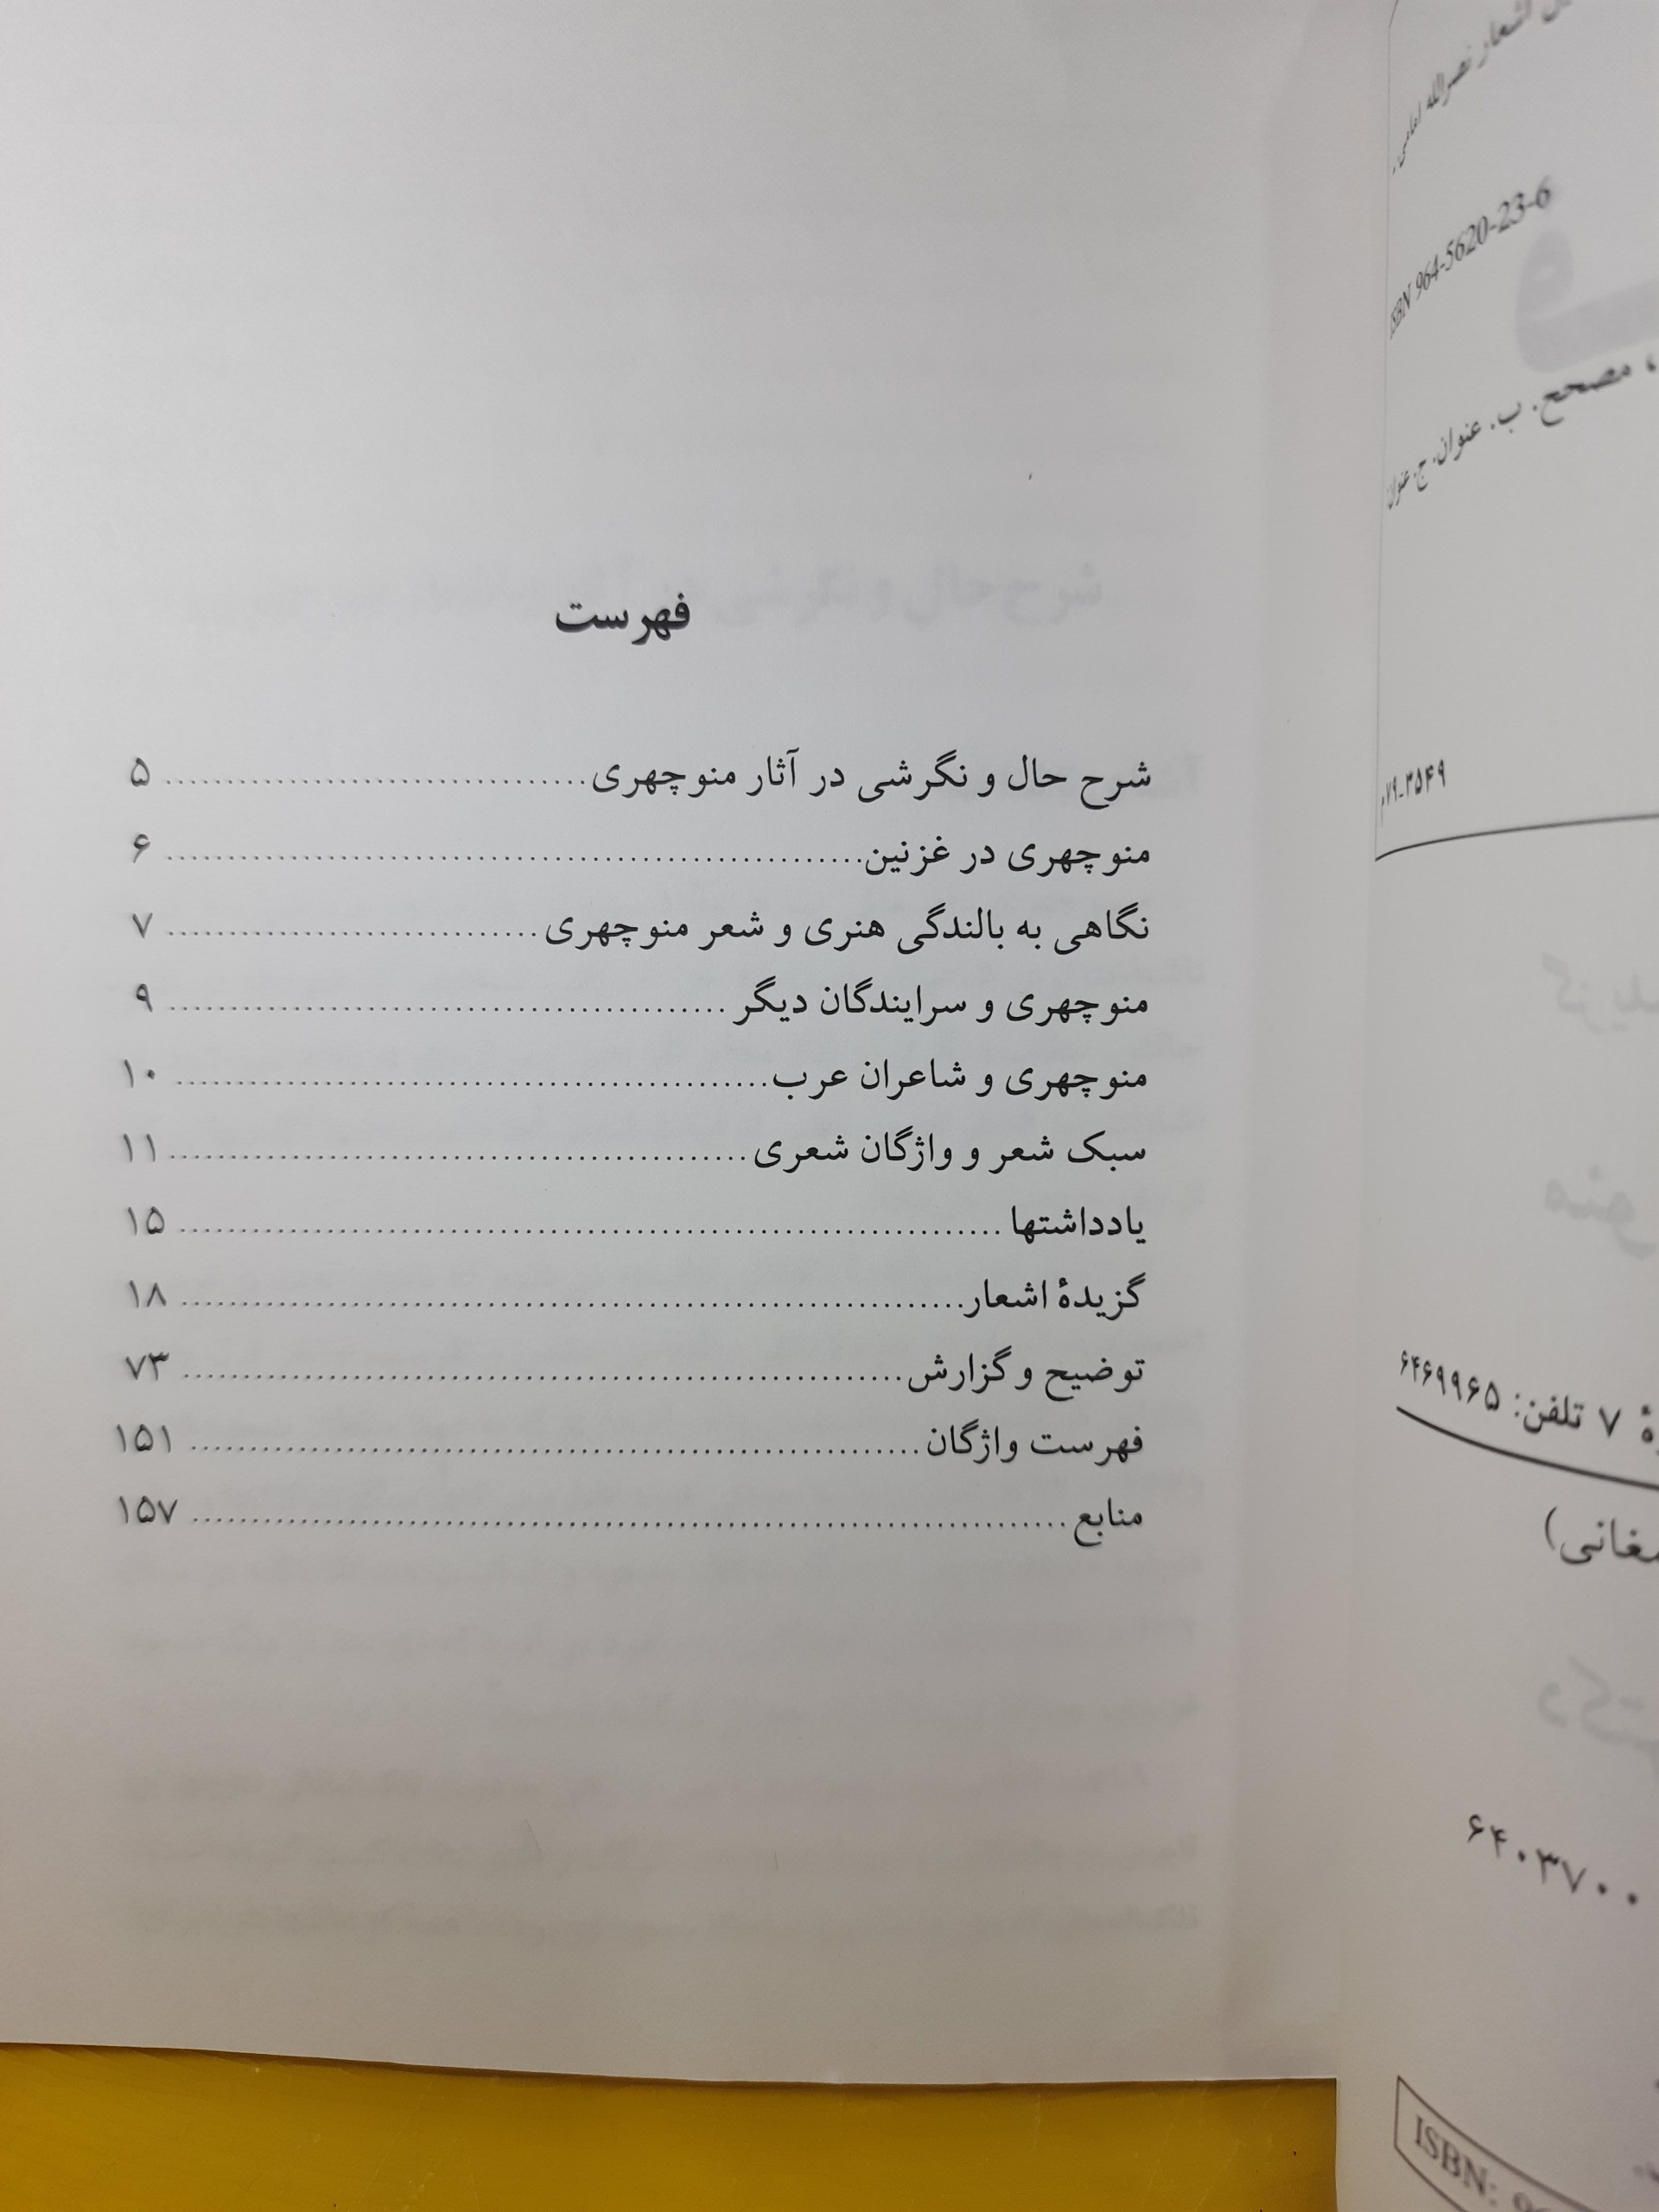 فهرست
شرح حال و نگرشی در آثار منوچهری ........ ۵
منوچهری در غزنین ........ ۶
نگاهی به بالندگی هنری و شعر منوچهری ........ ۷
منوچهری و سرایندگان دیگر ........ ۹
منوچهری و شاعران عرب ........ ۱۰
سبک شعر و واژگان شعری ........ ۱۱
یادداشتها ........ ۱۵
گزیدهٔ اشعار ........ ۱۸
توضیح و گزارش ........ ۷۳
فهرست واژگان ........ ۱۵۱
منابع ........ ۱۵۷
اشعار نصرالله امامی.
ISBN 964-5620-23-6
، مصحح. ب. عنوان. ج. عنوان
۳۵۴۹-۷۹م
۷ تلفن: ۶۴۶۹۹۶۵
۶۴۰۳۷۰۰
ISBN: